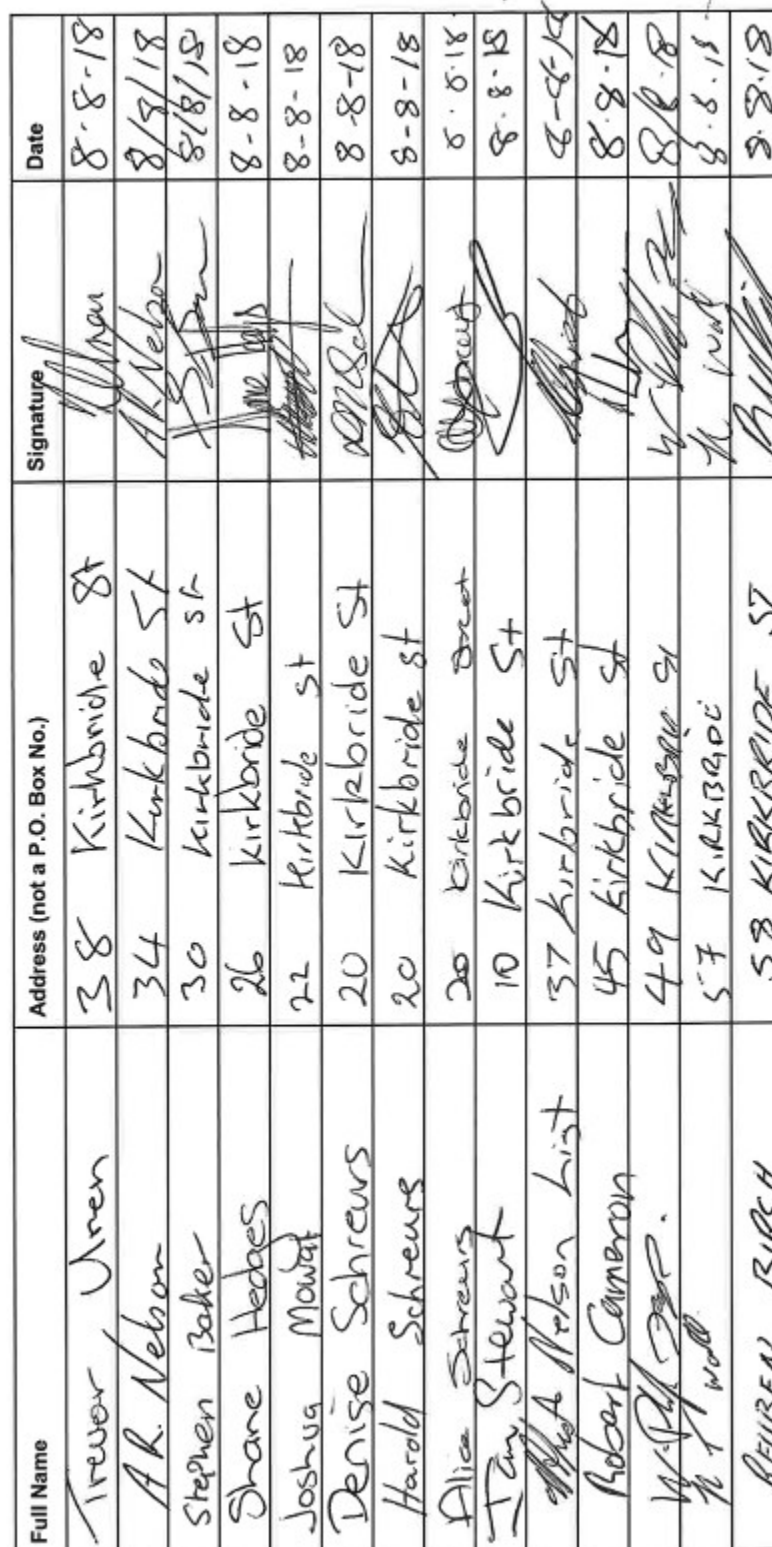 Full Name Address (not a P.O. Box No.) Signature Date
Trevor Uren 38 Kirkbride St 8-8-18
A R. Nelson 34 Kirkbride St A R Nelson 8/8/18
Stephen Baker 30 Kirkbride St 8/8/18
Shane Hedges 26 Kirkbride St 8-8-18
Joshua Mowat 22 Kirkbride St 8-8-18
Denise Schreurs 20 Kirkbride St 8-8-18
Harold Schreurs 20 Kirkbride St 8-8-18
Alice Schreurs 20 Kirkbride Street 8.8.18
Stewart 10 Kirkbride St 8.8.18
Nelson List 37 Kirbride St 8-8-18
Robert Cameron 45 Kirkbride St 8.8.18
49 8/8.18
Wall 57 KIRKBRIDE Wall 8.8.18
REUBEN BIRCH 58 KIRKBRIDE ST 8.8.18